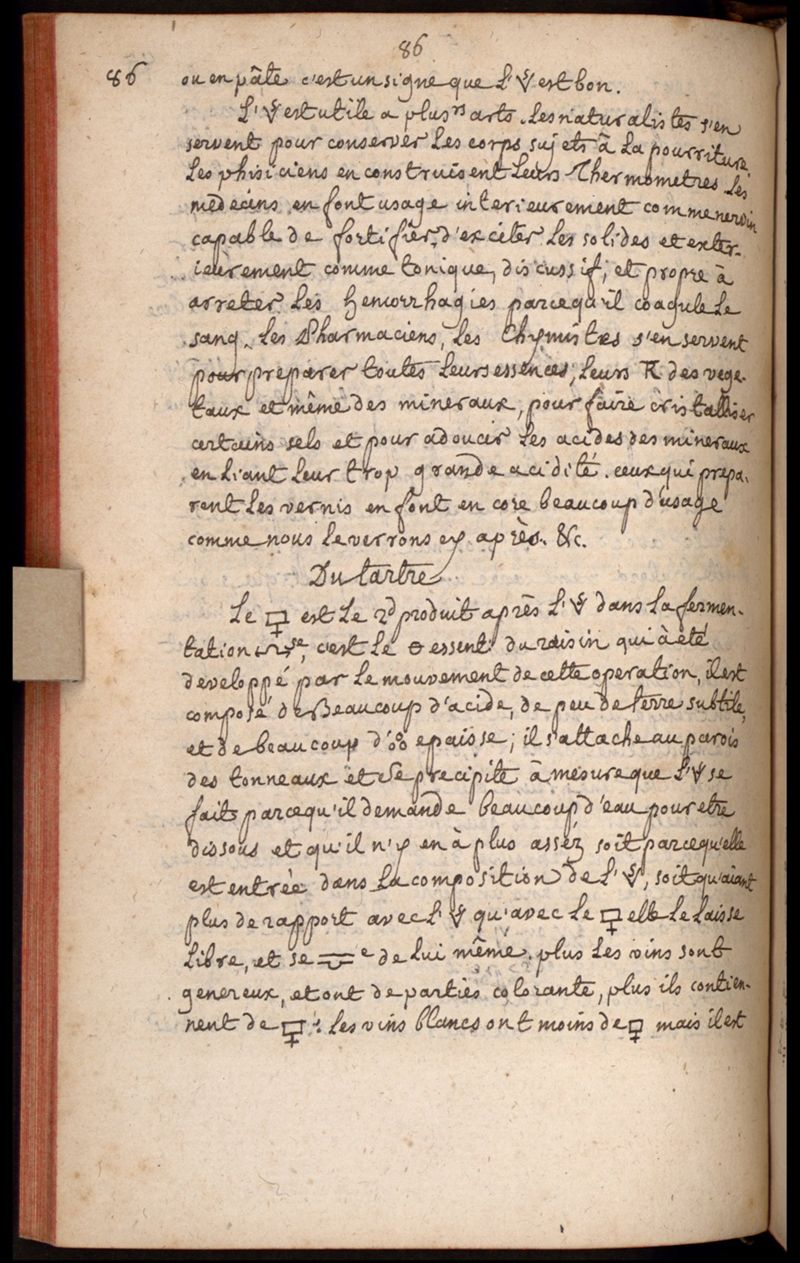 86
86 ou en pâte c'est un signe que L'🜈 est bon.
L'🜈 est utile a plusrs arts. Les naturalistes s'en
servent pour conserver Les corps sujets â La pourriture
Les phisiciens en construisent Leurs Thermometres Les
medecins en font usage interieurement comme nervin
capable de fortifier, d'exciter Les solides et exter-
ieurement comme tonique, discussif, et propre à
arreter Les hemorrhagies parcequ'il coagule Le
sang. Les Pharmaciens, Les Chymistes s'en servent
pour preparer toutes Leurs essences, Leurs R des vege-
taux et même des mineraux, pour faire cristalliser
certains sels et pour adoucir Les acides des mineraux
en Liant Leur trop grande acidité. ceux qui prepa-
rent Les vernis en font en core beaucoup d'usage
comme nous Le verrons cy après. &c.
Du tartre
Le 🜿 est Le 2d produit après L'🜈 dans La fermen-
tation, c'est Le 🜔 essentl du raisin qui à été
developpé par Le mouvement de cette operation, il est
composé de Beaucoup d'acide, de peu de terre subtile,
et de beaucoup d'🝆 epaisse; il s'attache au parois
des tonneaux et se precipite â mesure que L'🜈 se
fait parcequ'il demande beaucoup d'eau pour etre
dissous et qu'il n'y en à plus assez soit parcequ'elle
est entrèe dans La composition de L'🜈, soit qu'aiant
plus de rapport avec L'🜈 qu'avec Le 🜿 elle Le Laisse
Libre, et se de Lui même. plus Les vins sont
genereux, et ont de parties colorante, plus ils contien-
nent de 🜿: Les vins blancs ont moins de 🜿 mais il est